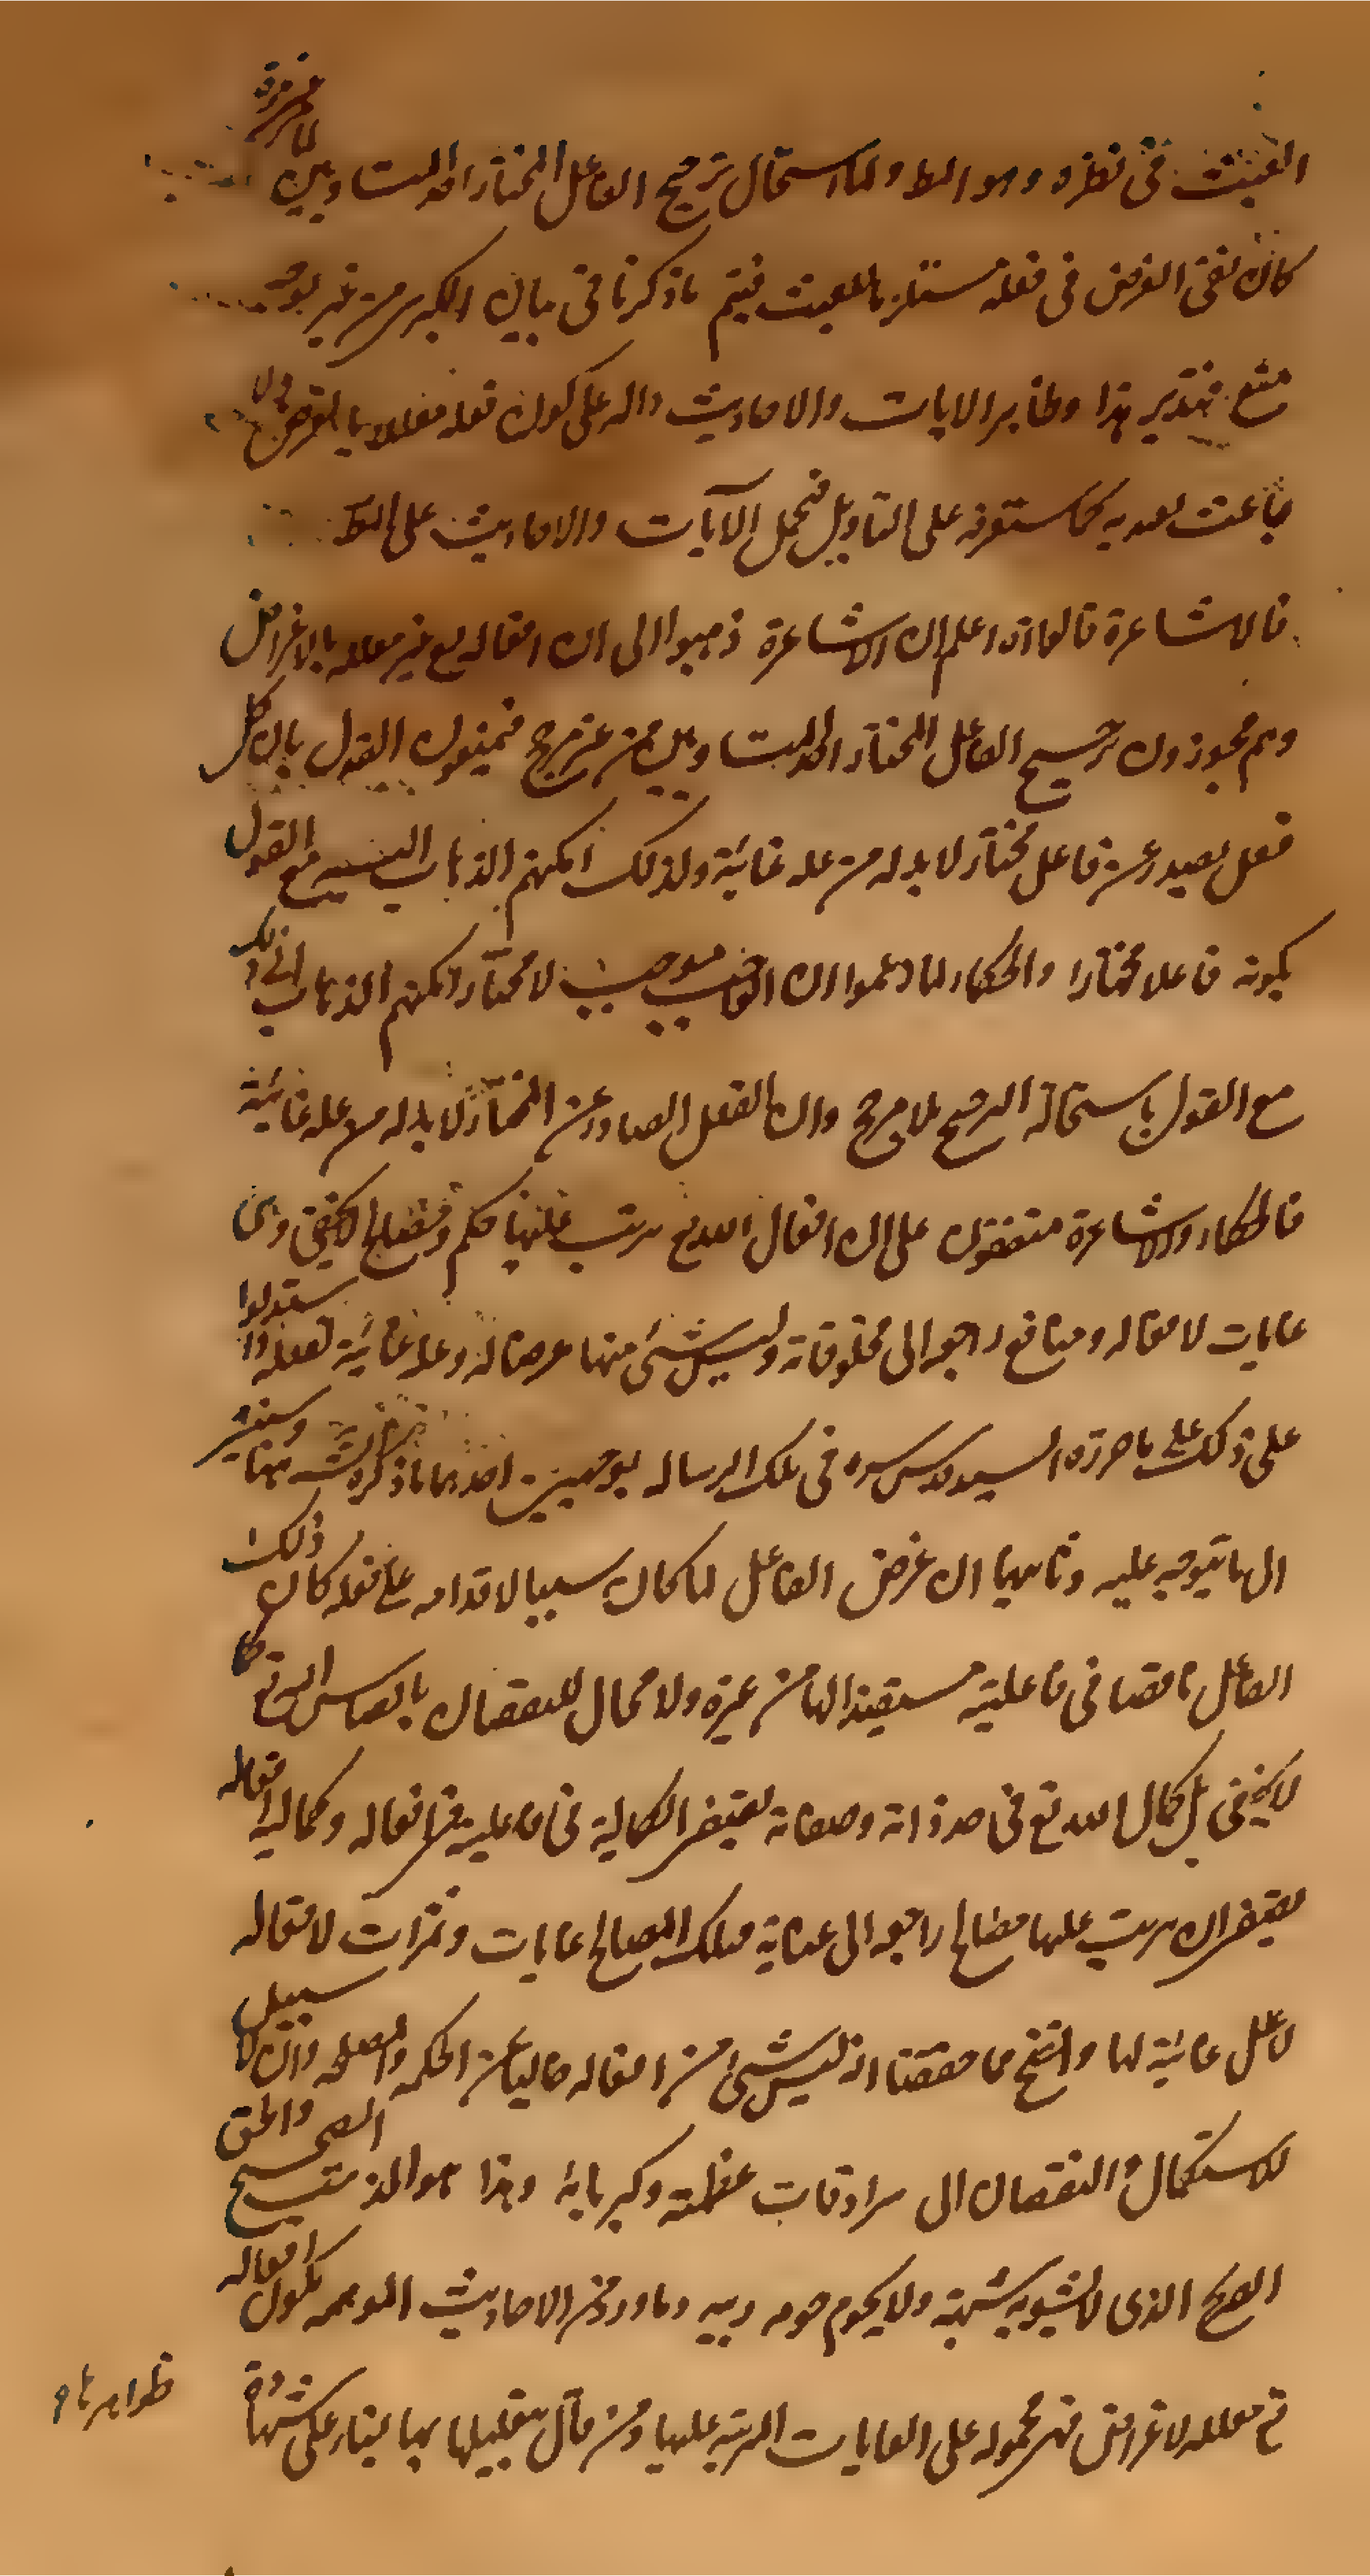 العبث في نظره وهو الط ولما استحال ترجيح الفاعل المختار احد المتساويين
كان نفي الغرض في فعله مستلزما للعبث فيتم ما ذكرنا في بيان الكبرى من غير توجه
منع فتدبر هذا وظاهر الايات والاحاديث داله على كون فعله معللا بالغرض ولا
باعث بعد به كما ستعرفه على التاويل فنحمل الآيات والاحاديث على الظ
فالاشاعرة قالوا اه اعلم ان الاشاعرة ذهبوا الى ان افعاله تع غير معلله بالاغراض
وهم مجوزون ترجيح الفاعل المختار احد المتساويين من غير مرجح فيمنعون القول بان كل
فعل يصدر عن فاعل مختار لا بد له من عله غائية ولذلك امكنهم الذهاب اليه مع القول
بكونه فاعلا مختارا والحكماء لما زعموا ان الواجب موجب لا مختار امكنهم الذهاب الى ذلك
مع القول باستحالة الترجيح بلا مرجح وان الفعل الصادر عن المختار لا بد له من عله غائية
فالحكماء والاشاعرة متفقون على ان افعال الله تع يترتب عليها حكم ومصالح لا تخفى وهي
غايات لافعاله ومنافع راجعه الى مخلوقاته وليس شئ منها غرضا له وعله غائية لفعله واستدلوا
على ذلك على ما حرره السيد قدس سره في تلك الرساله بوجهين احدهما ما ذكره الش ههنا وستشير
الى ما يتوجه عليه وثانيهما ان غرض الفاعل لما كان سببا لاقدامه على فعله كان ذلك
الفاعل ناقصا في فاعليته مستفيدا لها من غيره ولا مجال للنقصان بالقياس اليه تع كما
لا يخفى بل كمال الله تع في حد ذاته وصفاته يقتضى الكمالية في فاعليته وافعاله وكمالية افعاله
يقتضى ان يترتب عليها مصالح راجعه الى عباده فتلك المصالح غايات وثمرات لافعاله
لا علل غائية لها واتضح بما حققنا انه ليس شئ من افعاله خاليا عن الحكمه والمصلحه وان لا سبيل
للاستكمال والنقصان الى سرادقات عظمته وكبريائه وهذا هو المذهب الصحيح والحق
الصريح الذى لا يشوبه شبهة ولا يحوم حوله ريبه وما ورد من الاحاديث الموهمه بكون افعاله
تع معلله لاغراض فهى محموله على الغايات المترتبه عليها ومن قال بتعليلها بها بناء على شهادة
ظواهرها و